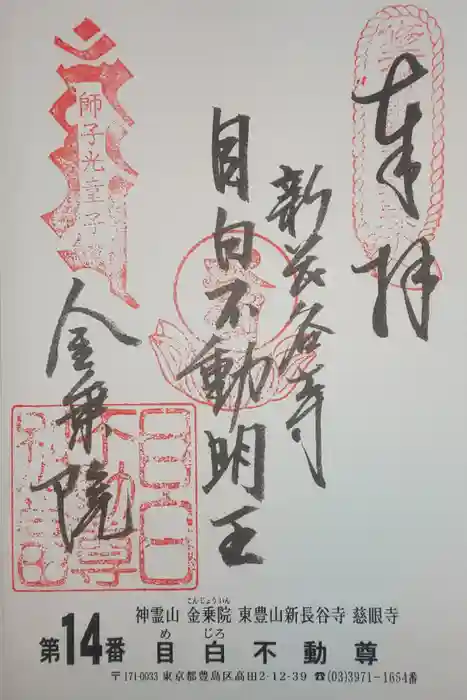 奉拝
新長谷寺
目白不動明王
師子光童子
金乗院
目白不動尊
神霊山 金乗院 東豊山新長谷寺 慈眼寺
こんじょういん
第14番 目白不動尊
め じろ
〒171-0033 東京都豊島区高田2-12-39 ☎(03)3971-1654番